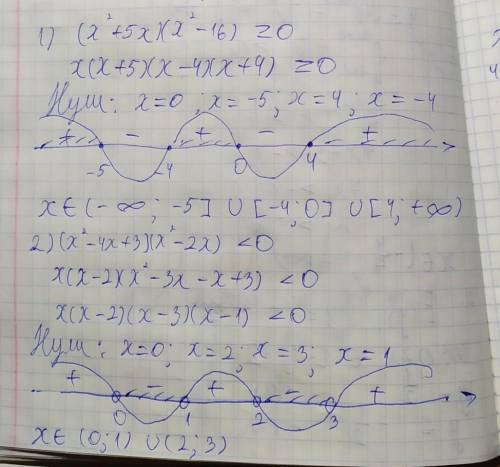 1) (x²+5x)(x²-16) ≥0
x(x+5)(x-4)(x+4) ≥0
Нули: x=0; x=-5; x=4; x=-4
+ - + - +
-5 -4 0 4
x∈(-∞; -5] ∪ [-4;0] ∪ [4; +∞)
2) (x²-4x+3)(x²-2x) <0
x(x-2)(x²-3x-x+3) <0
x(x-2)(x-3)(x-1) <0
Нули: x=0; x=2; x=3; x=1
+ - + - +
0 1 2 3
x∈ (0;1) ∪(2;3)